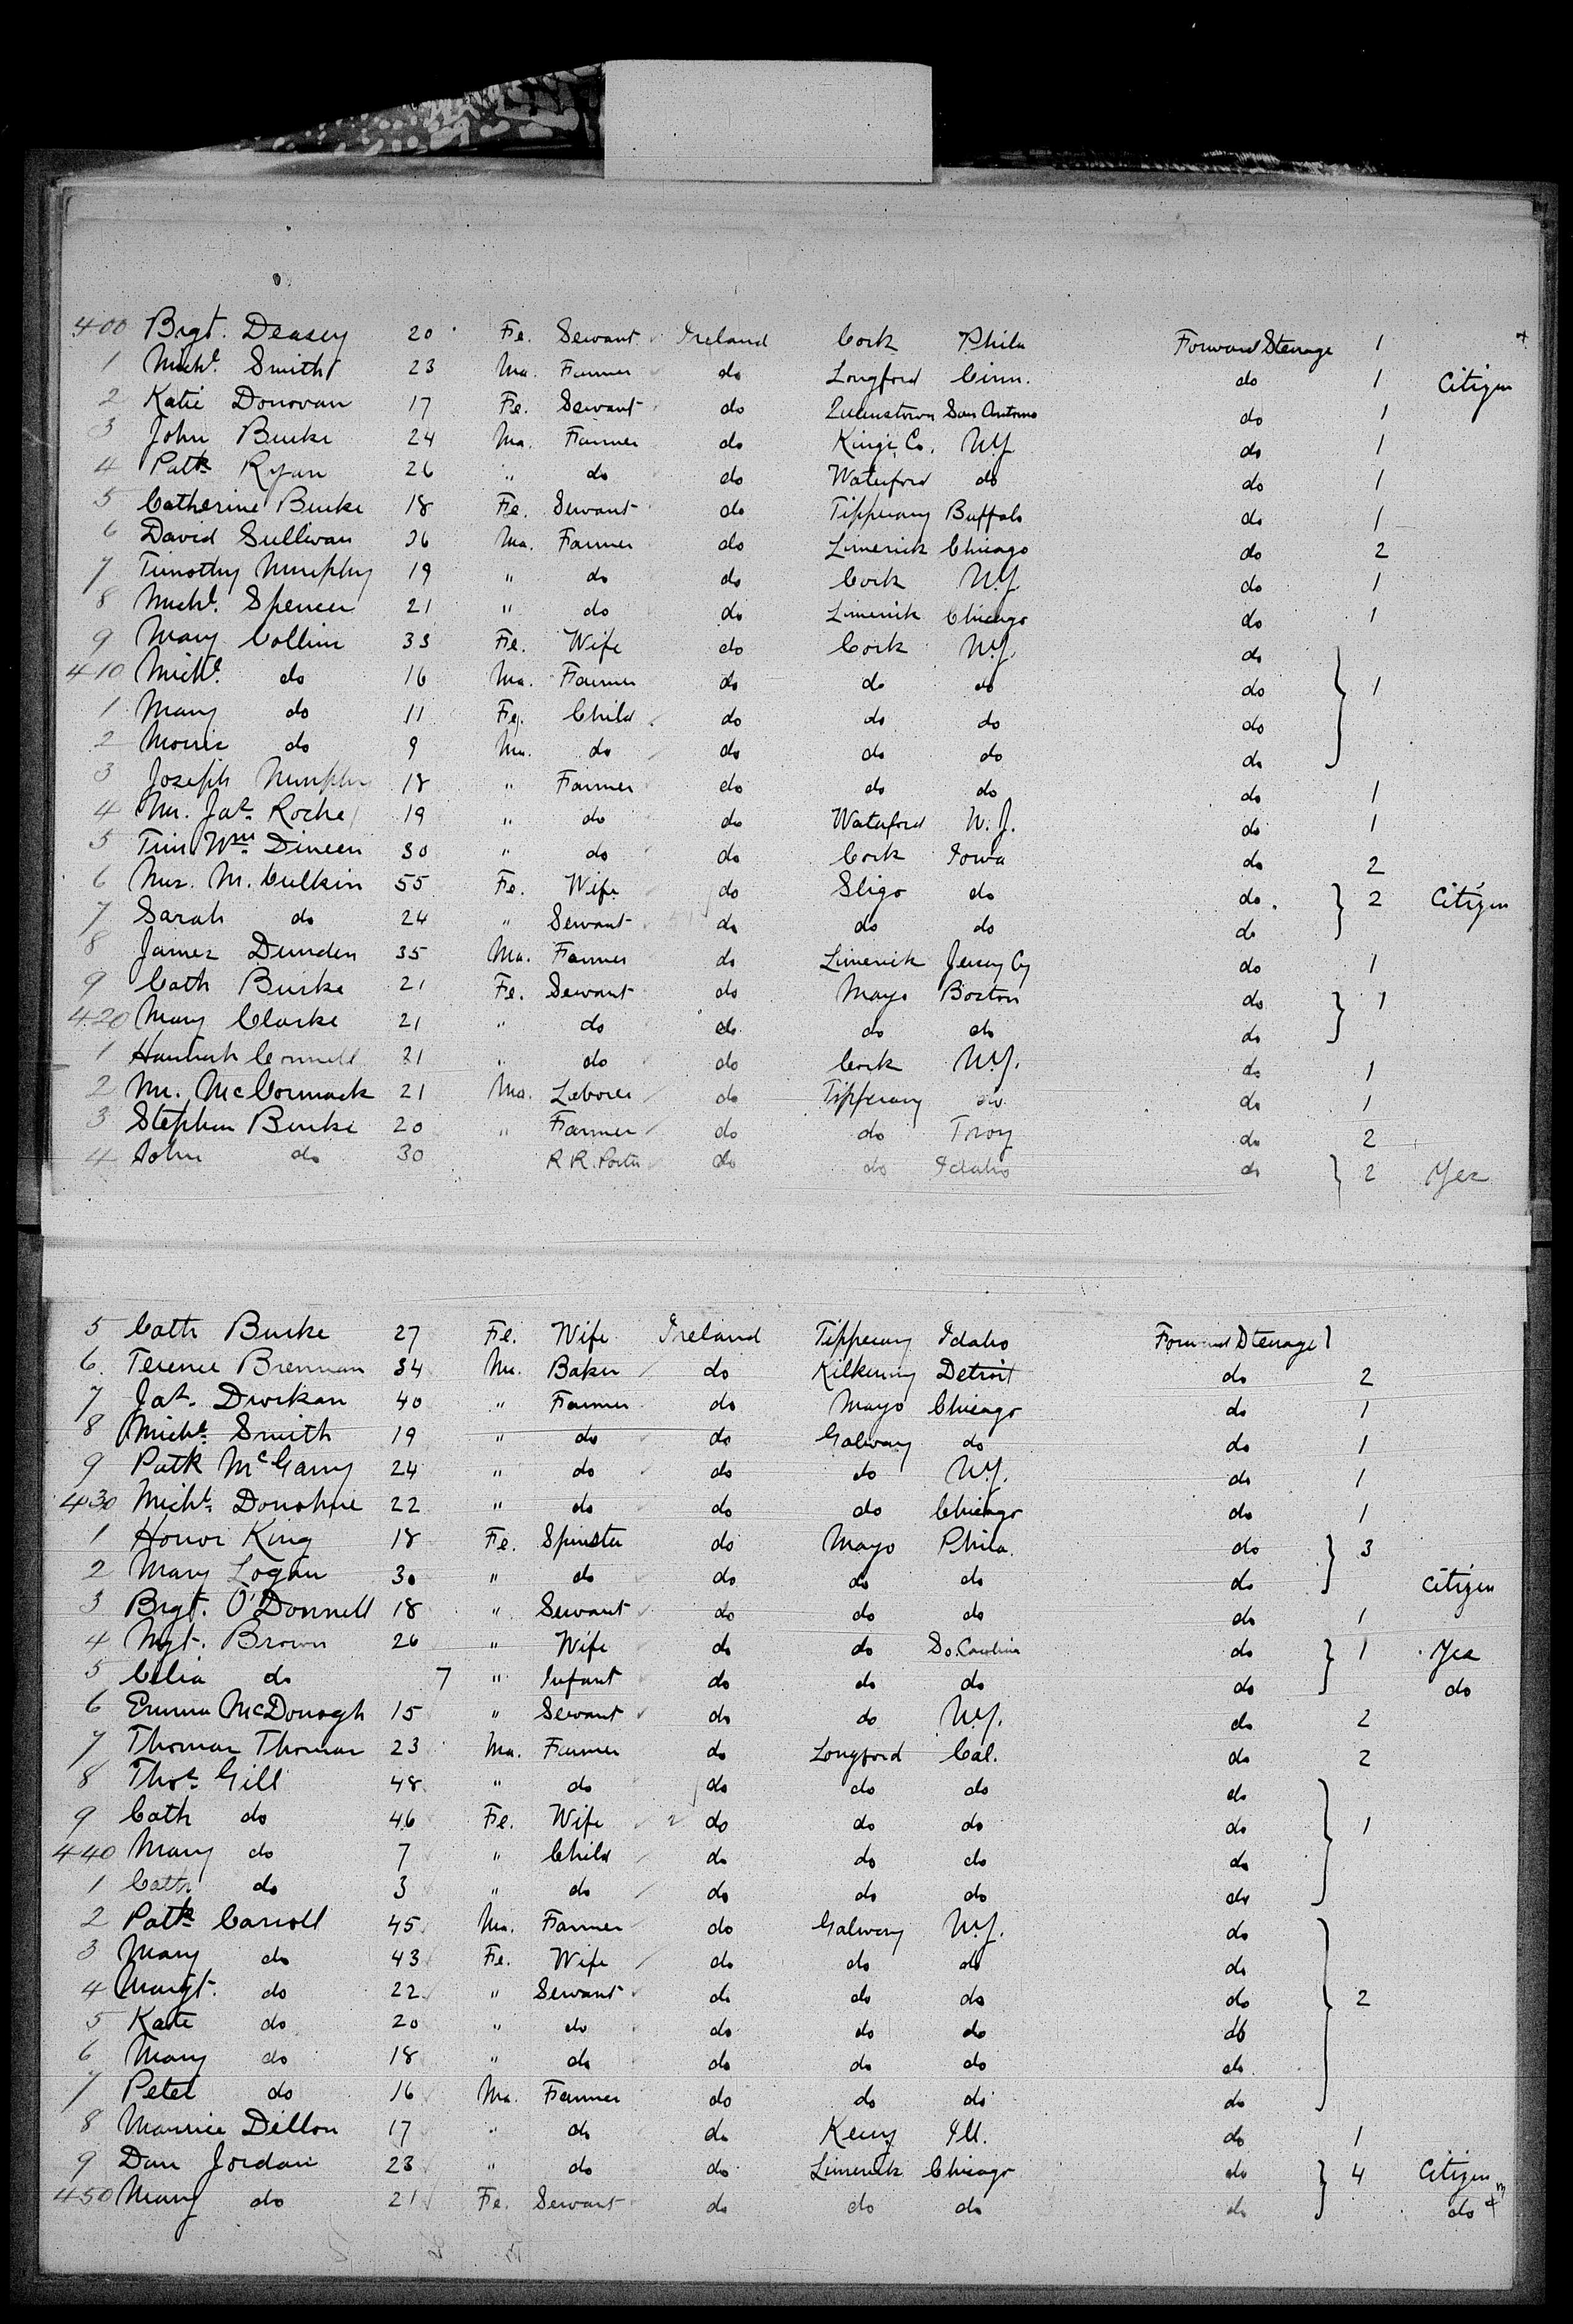 400 Brgt. Deasey 20 Fe. Servant Ireland Cork Phila Forward Steerage 1
1 Michl. Smith 23 Ma. Farmer do Longford Cinn. do 1 Citizen
2 Katie Donovan 17 Fe. Servant do Queenstown San Antonio do 1
3 John Burke 24 Ma. Farmer do Kings Co. N.Y. do 1
4 Patk Ryan 26 " do do Waterford do do 1
5 Catherine Burke 18 Fe. Servant do Tipperary Buffalo do 1
6 David Sullivan 26 Ma. Farmer do Limerick Chicago do 2
7 Timothy Murphy 19 " do do Cork N.Y. do 1
8 Michl. Spencer 21 " do do Limerick Chicago do 1
9 Mary Collins 33 Fe. Wife do Cork N.Y. do
410 Michl. do 16 Ma. Farmer do do do do 1
1 Mary do 11 Fe. Child do do do do
2 Morris do 9 Ma. do do do do do
3 Joseph Murphy 18 " Farmer do do do do 1
4 Mr. Jas. Roche 19 " do do Waterford N.J. do 1
5 Tim Wm. Dineen 30 " do do Cork Iowa do 2
6 Mrs. M. Culkin 55 Fe. Wife do Sligo do do. 2 Citizen
7 Sarah do 24 " Servant do do do do
8 James Dunden 35 Ma. Farmer do Limerick Jersey Cy do 1
9 Cath Burke 21 Fe. Servant do Mayo Boston do 1
420 Mary Clarke 21 " do do do do do
1 Hannah Connell 21 " do do Cork N.Y. do 1
2 Mr. McCormack 21 Ma. Laborer do Tipperary do do 1
3 Stephen Burke 20 " Farmer do do Troy do 2
4 John do 30 R.R. Porter do do Idaho do 2 Yes
5 Cath Burke 27 Fe. Wife Ireland Tipperary Idaho Forward Steerage
6 Terence Brennan 34 Ma. Baker do Kilkenny Detroit do 2
7 Jas. Dwrkan 40 " Farmer do Mayo Chicago do 1
8 Michl. Smith 19 " do do Galway do do 1
9 Patk McGarry 24 " do do do N.Y. do 1
430 Michl. Donohue 22 " do do do Chicago do 1
1 Honor King 18 Fe. Spinster do Mayo Phila. do 3
2 Mary Logan 30 " do do do do do Citizen
3 Brgt. O'Donnell 18 " Servant do do do do 1
4 Mgt. Brown 26 " Wife do do So. Carolina do 1 Yes
5 Celia do 7 " Infant do do do do do
6 Emma McDonogh 15 " Servant do do N.Y. do 2
7 Thomas Thomas 23 Ma. Farmer do Longford Cal. do 2
8 Thos. Gill 48 " do do do do do
9 Cath do 46 Fe. Wife do do do do 1
440 Mary do 7 " Child do do do do
1 Cath. do 3 " do do do do do
2 Patk Carroll 45 Ma. Farmer do Galway N.Y. do
3 Mary do 43 Fe. Wife do do do do
4 Margt. do 22 " Servant do do do do 2
5 Kate do 20 " do do do do do
6 Mary do 18 " do do do do do
7 Peter do 16 Ma. Farmer do do do do
8 Maurice Dillon 17 " do do Kerry Ill. do 1
9 Dan Jordan 23 " do do Limerick Chicago do 4 Citizen
450 Mary do 21 Fe. Servant do do do do do